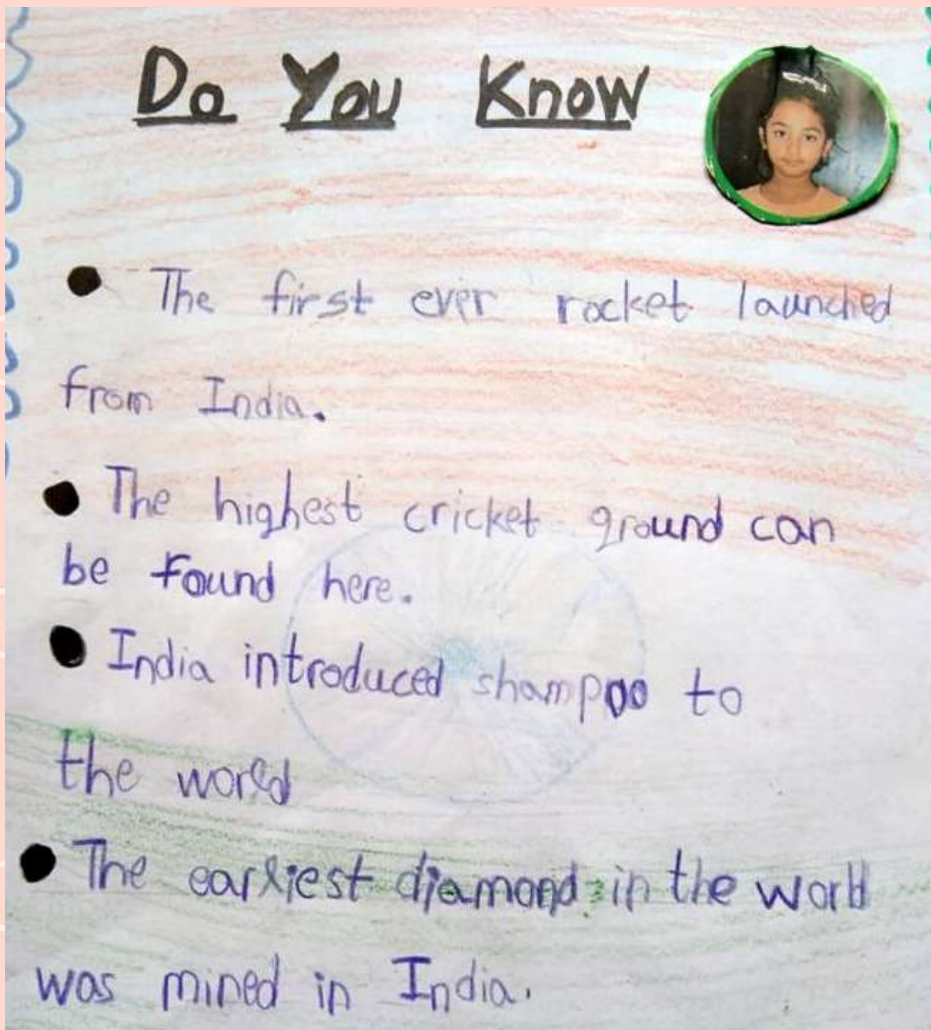 Do You Know
• The first ever rocket launched
from India.
• The highest cricket ground can
be found here.
• India introduced shampoo to
the world
• The earliest diamond in the world
was mined in India.